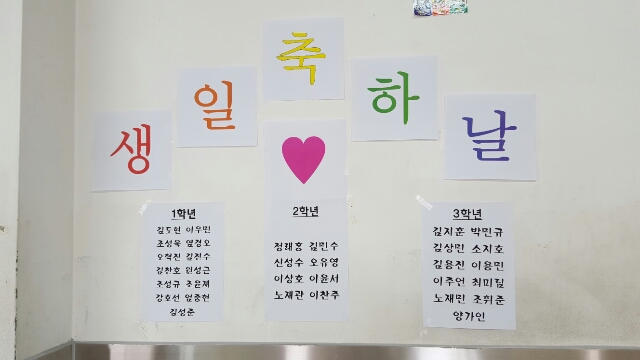 생일축하날
1학년
김도현 이우민
조성욱 엄경오
오혁진 김진수
김찬호 원성근
조성규 조윤재
강호선 엄종현
김성준
2학년
정래홍 김민수
신성수 오유영
이상호 이윤서
노재관 이찬주
3학년
김지훈 박민규
김상민 소지호
김용진 이용민
이주언 최미길
노재민 조휘준
양가인